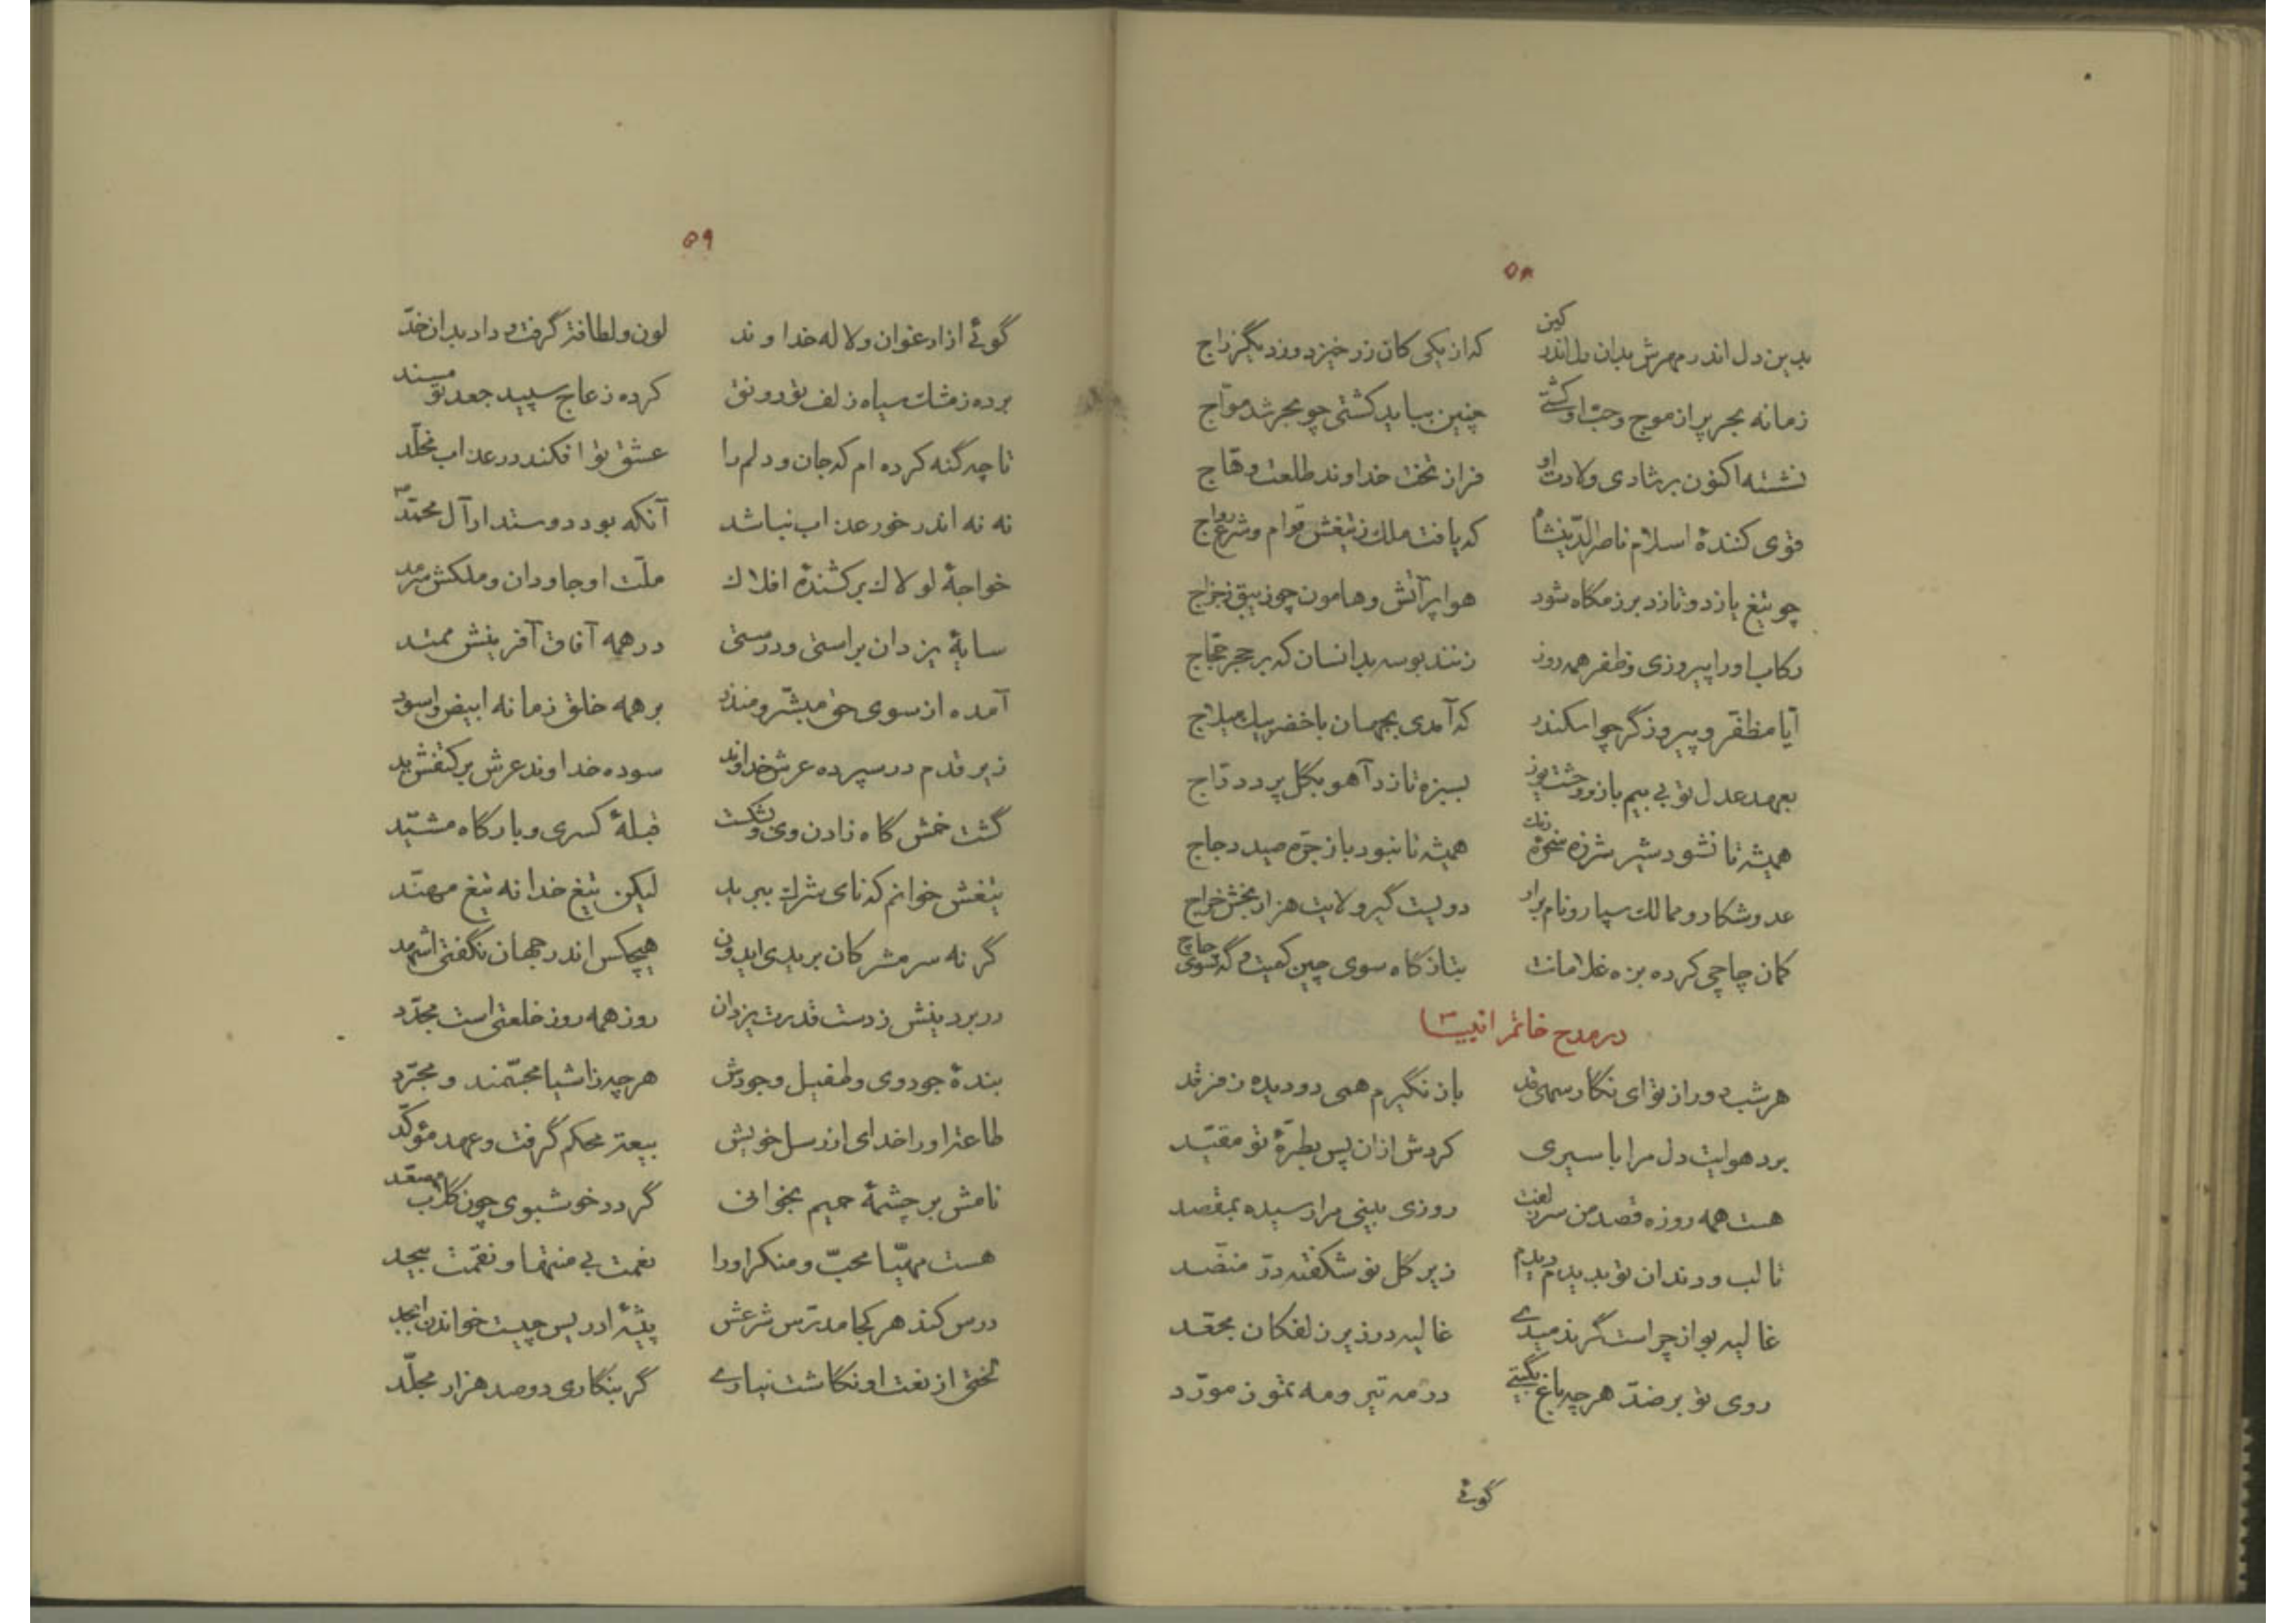 ۵۸
بدین دل اندر مهرش بدان دل اندر کین    که از یکی کان زر خیزد وز دیگر زاج
زمانه بحر پر از موج و حبّ او کشتی    چنین بباید کشتی چو بحر شد موّاج
نشسته اکنون بر شادی ولادت او    فراز تخت خداوند طلعت وهّاج
قوی کنندهٔ اسلام ناصر الدّین شاه    که یافت ملک ز تیغش قوام و شرع رواج
چو تیغ یازد و تازد برزمگاه شود    هوا پر آتش و هامون چو زیبق رجراج
رکاب او را پیروزی و ظفر همه روز    زنند بوسه بدانسان که بر حجر حجّاج
آیا مظفّر و پیروزگر چو اسکندر    که آمدی بجهان با خضر بیک میلاج
بعهد عدل تو بی بیم باز و وحشت یوز    بسبزه تازد آهو بگل پرد درّاج
همیشه تا نشود شیر شرزه سخرهٔ رنگ    همیشه تا نبود باز جرّه صید دجاج
عدو شکار و ممالک سپار و نام برار    دویست گیر و لایت هزار بخش خراج
کمان چاچی کرده بزه غلامانت    بتاز گاه سوی چین کمیت و گه سوی چاچ
در مدح خاتم انبیا
هر شب دور از تو ای نگار سهی قد    باز نگیرم همی دو دیده ز فرقد
برد هوایت دل مرا باسیری    کردش ازان پس بطرّهٔ تو مقیّد
هست همه روزه قصد من سر زلفت    روزی بینی مرا رسیده بمقصد
تا لب و دندان تو بدیدم دیدم    زیر گل نو شکفته درّ منضّد
غالیه بو از چراست گر ندمیدے    غالیه در زیر زلفکان مجعّد
روی تو بر ضدّ هر چه باغ بگیتی    در مه تیر و مه تموز مورّد
گوئی
۵۹
گوئی از ارغوان و لاله خداوند    لون و لطافت گرفت و داد بدان خدّ
برده ز مشک سیاه زلف تو رونق    کرده ز عاج سپید جعد تو مسند
تا چه گنه کرده ام که جان و دلم را    عشق تو افکند در عذاب مخلّد
نه نه اندر خور عذاب نباشد    آنکه بود دوستدار آل محمّد ص
خواجهٔ لولاک برکشندهٔ افلاک    ملّت او جاودان و ملکش سرمد
سایهٔ یزدان براستی و درستی    در همه آفاق آفرینش ممتد
آمده از سوی حق مبشّر و منذر    بر همه خلق زمانه ابیض و اسود
زیر قدم در سپرده عرش خداوند    سوده خداوند عرش بر کتفش ید
گشت خمش گاه زادن وی و بشکست    قبلهٔ کسری و بارگاه مشیّد
تیغش خوانم که نای شرک ببرید    لیکن تیغ خدا نه تیغ مهنّد
گر نه سر مشرکان بریدی ایدون    هیچکس اندر جهان نگفتی اشهد
در بر دینش ز دست قدرت یزدان    روز همه روز خلعتی است مجدّد
بندهٔ جود وی و طفیل وجودش    هر چه ز اشیا مجسّمند و مجرّد
طاعت او را خدای از رسل خویش    بیعت محکم گرفت و عهد مؤکّد
نامش بر چشمهٔ حمیم بخوانی    گردد خوشبوی چون گلاب مصعّد
هست مهیّا محبّ و منکر او را    نعمت بی منتها و نقمت بیحد
درس کند هر کجا مدرّس شرعش    پیشهٔ ادریس چیست خواندن ابجد
لختی از نعت او نگاشت نیارے    گر بنگاری دو صد هزار مجلّد